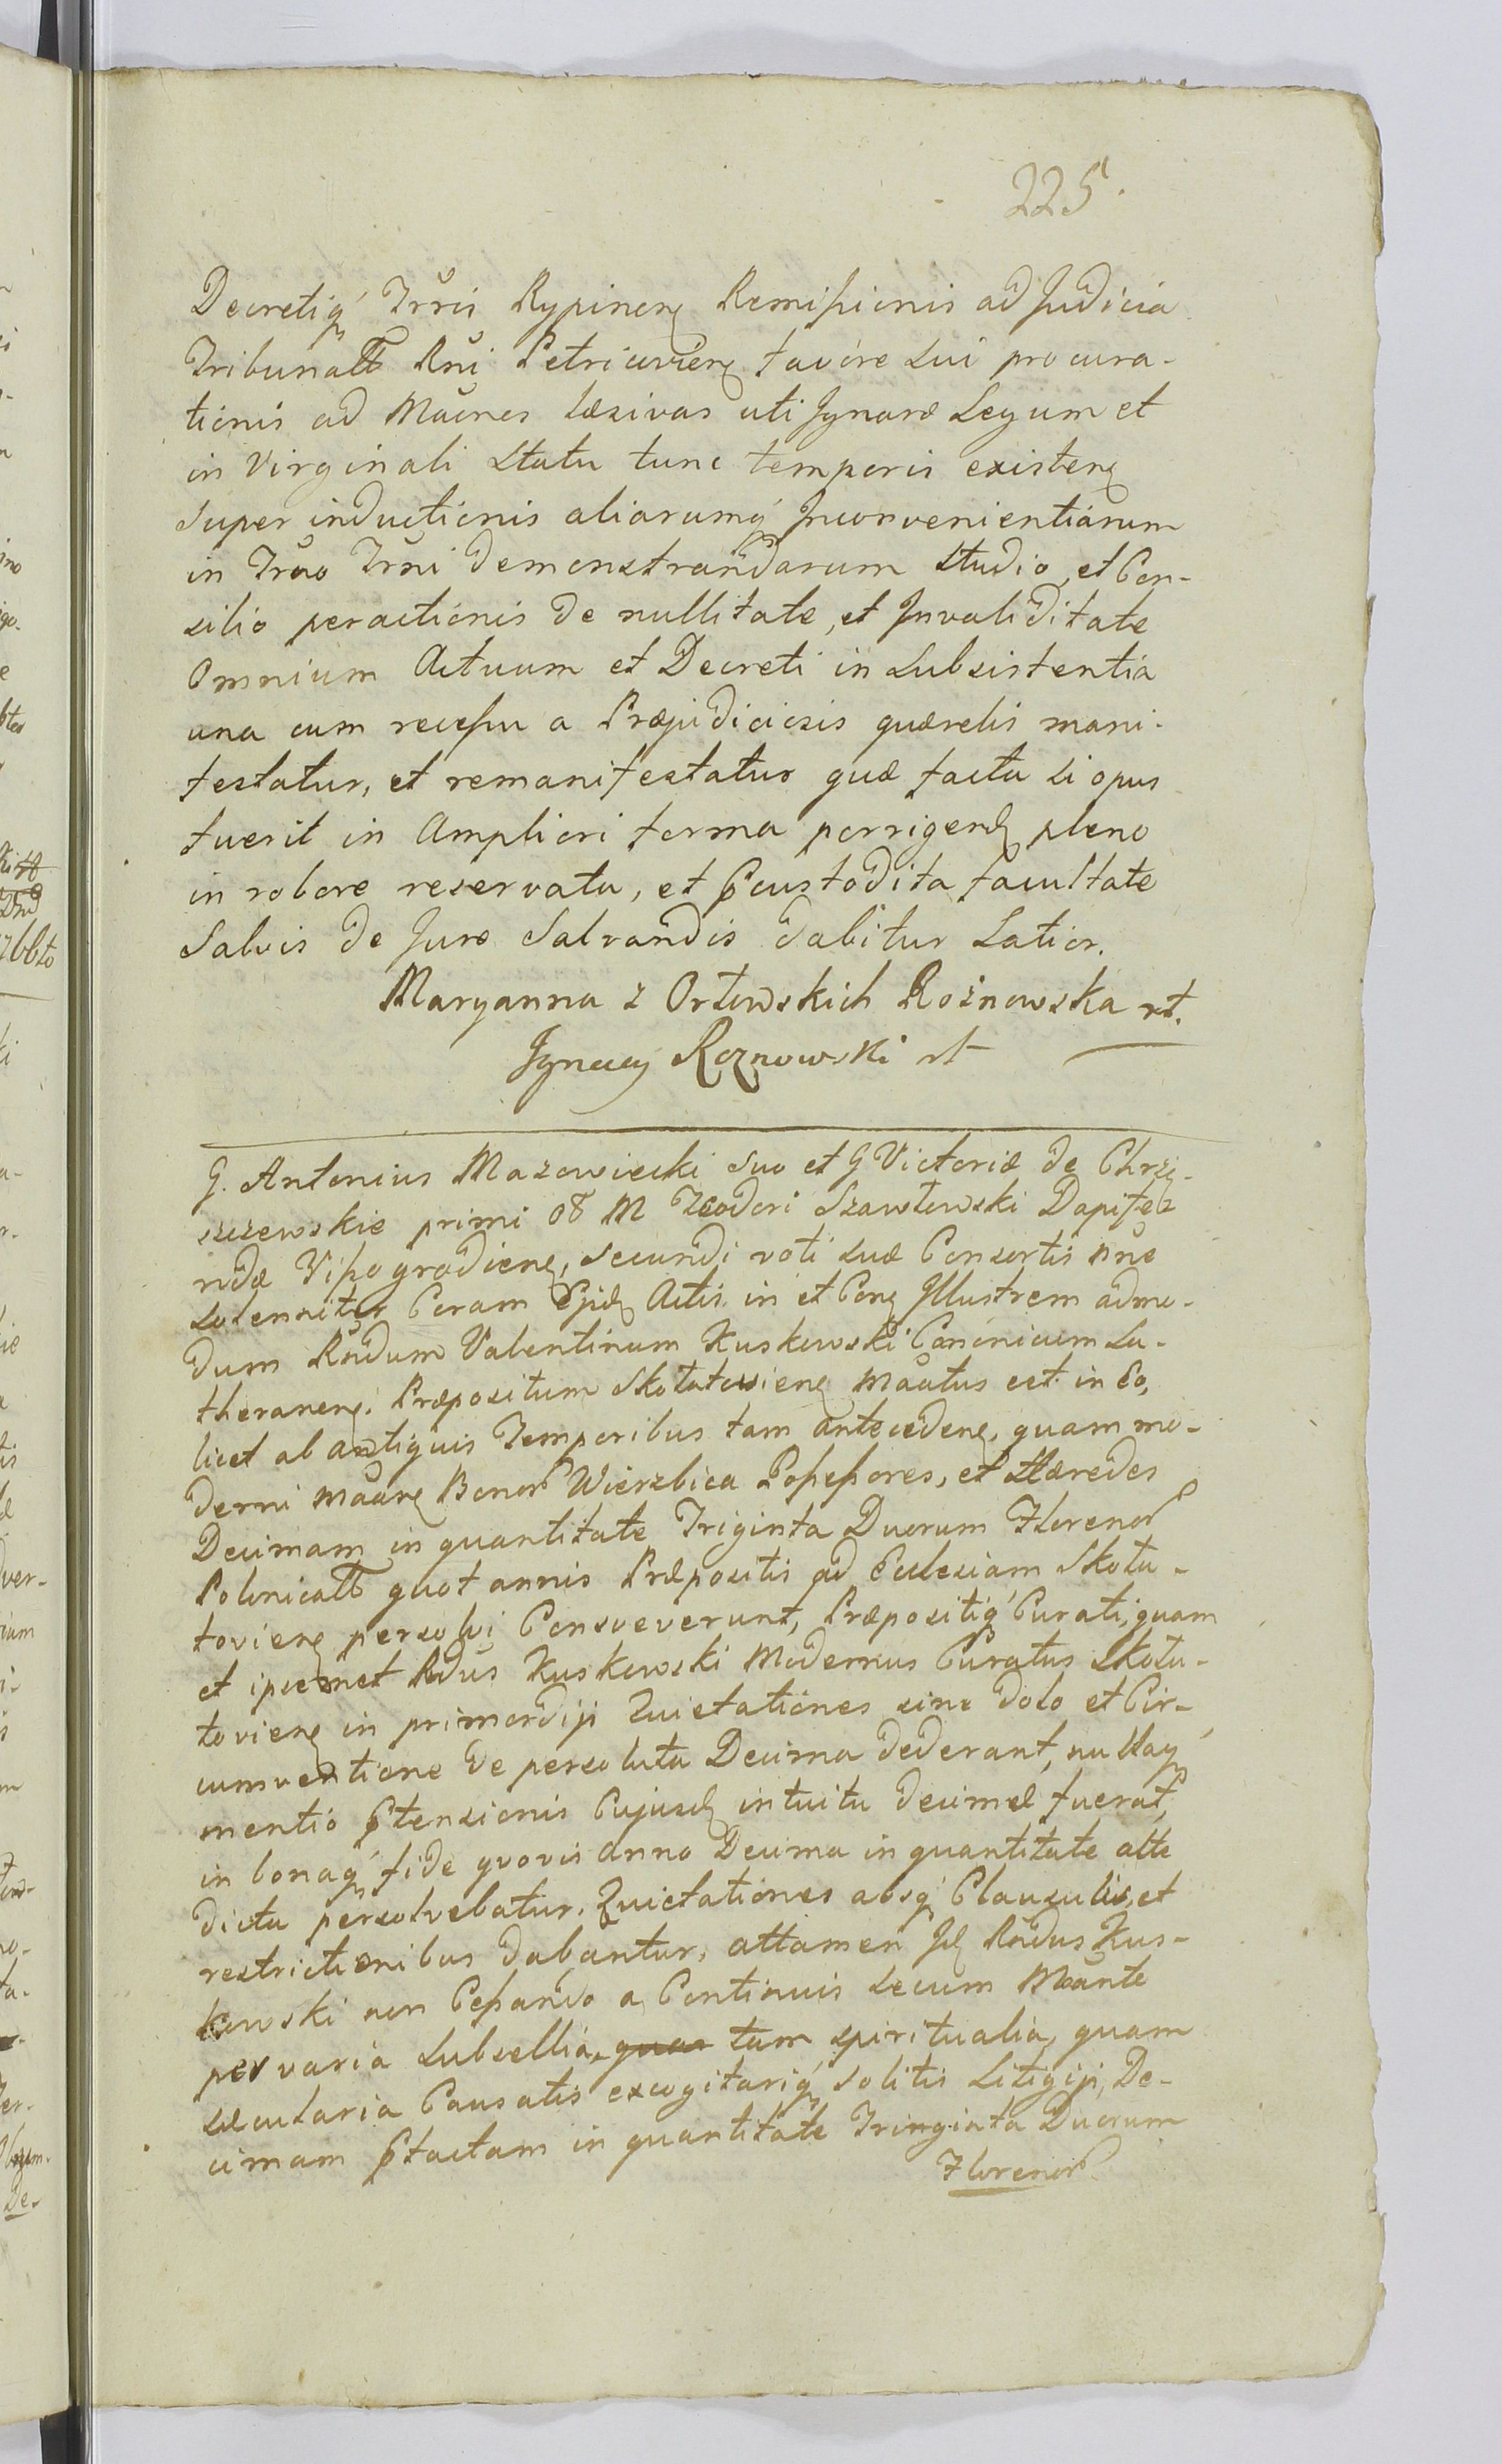 225.
Decretiq́ Trris Rypinen Remissionis ad Judicia
Tribunall Rni Petricovien favore sui procura-
tionis ad Mãones læsivas uti Jgnaræ Legum et
in Virginali Statu tunc temporis existen
super inductionis aliarumq́ Jnconvenientiarum
in Trño Trñi demonstrandarum studio, et Con-
silio peractionis de nullitate, et Jnvaliditate
Omnium Actuum et Decreti in subsistentia
una cum recessu a Præjudiciosis quærelis mani-
festatur, et remanifestatur quæ facta si opus
fuerit in Ampliori forma porrigend pleno
in robore reservata, et Pcustodita facultate
Salvis de Jure Salvandis dabitur Latior.
Maryanna z Orłowskich Rożnowska rt.
Jgnacy Roznowski rt
G. Antonius Mazowiecki suo et G Victoriæ de Chrzą-
szczewskie primi ob M Teodori Szawłowski Dapiferi
ndæ Vissogradien, secundi voti suæ Consortis nñe
solenniter Coram Ejusd Actis in et Con Jllustrem admo-
dum Rñdum Valentinum Kuskowski Canonicum La-
theranen. Præpositum Skołatowien mãatus est. in Eo,
licet ab antiquis Temporibus tam anteceden, quam mo-
derni mãan Bonor Wierzbica Possessores, et Hæredes
Decimam in quantitate Triginta Duorum Florenor
Polonicall quot annis Præpositis ad Ecclesiam Skoła-
towien persolvi Consveverunt, Præpositiq́ Curati, quam
et ipsemet Rdus Kuskowski Modernus Curatus Skoła-
towien in primordiji Quietationes sine dolo et Cir-
cumventione de persoluta Decima dederant, nullaq́
mentio Ptensionis Cujusd intuitu decimæ fuerat,
in bonaq́ fide qvovis anno Decima in quantitate alte
dicta persolvebatur. Quietationes absq́ Clausulis, et
restrictionibus dabantur, attamen Jd Rñdus Kus-
kowski non Cessando a Continuis secum Mãante
per varia subsellia, quas tam spiritualia, quam
sæcularia Causatis excogitariq́ solitis Litigiji, De-
cimam Pfactam in quantitate Tringinta Duorum
Florenor